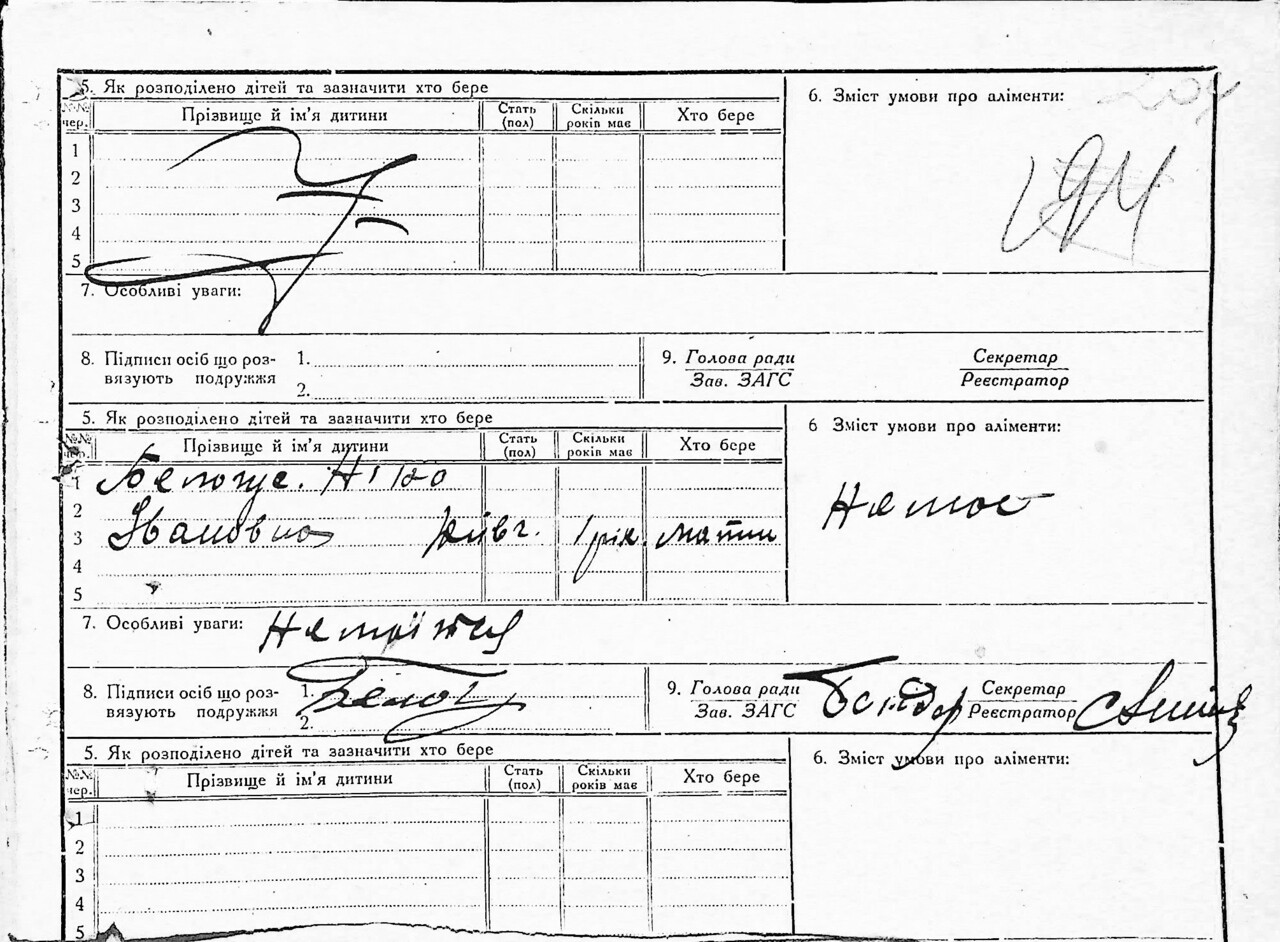 5. Як розподілено дітей та зазначити хто бере
6. Зміст умови про аліменти:
№№ чер.
Прізвище й ім'я дитини
Стать (пол)
Скільки років має
Хто бере
1
2
3
4
5
7. Особливі уваги:
8. Підписи осіб що роз-
вязують подружжя
1.
2.
9. Голова ради
Зав. ЗАГС
Секретар
Реєстратор
5. Як розподілено дітей та зазначити хто бере
6 Зміст умови про аліменти:
№№ чер.
Прізвище й ім'я дитини
Стать (пол)
Скільки років має
Хто бере
1
2
3 Ивановна дівч. 1 рік. мати
4
5
Немає
7. Особливі уваги:
8. Підписи осіб що роз-
вязують подружжя
1.
2.
9. Голова ради
Зав. ЗАГС
Секретар
Реєстратор
5. Як розподілено дітей та зазначити хто бере
6. Зміст умови про аліменти:
№№ чер.
Прізвище й ім'я дитини
Стать (пол)
Скільки років має
Хто бере
1
2
3
4
5